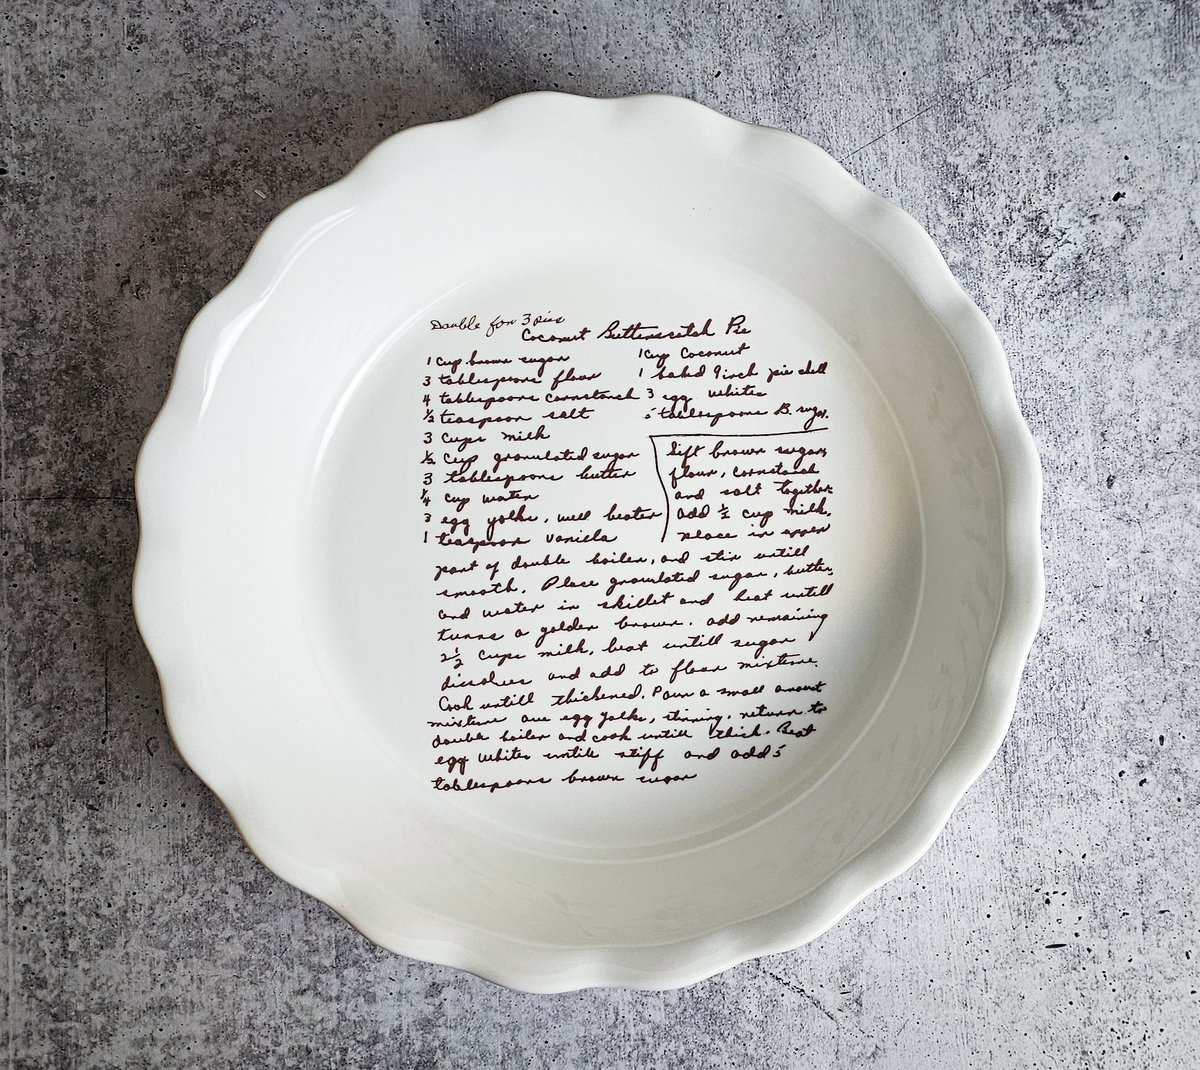 Double for 3 pies
Coconut Butterscotch Pie
1 cup brown sugar
3 tablespoons flour
4 tablespoons cornstarch
½ teaspoon salt
3 cups milk
½ cup granulated sugar
3 tablespoons butter
¼ cup water
3 egg yolks, well beaten
1 teaspoon vanilla
1 cup Coconut
1 baked 9 inch pie shell
3 egg whites
5 tablespoons B. sugar.
Sift brown sugar,
flour, cornstarch
and salt together
add ½ cup milk.
place in upper
part of double boiler, and stir untill
smooth. Place granulated sugar, butter,
and water in skillet and heat untill
turns a golden brown. add remaining
2½ cups milk, heat untill sugar
dissolves and add to flour mixture.
Cook untill thickened. Pour a small amount
mixture over egg yolks, stirring, return to
double boiler and cook untill thick. Beat
egg whites untill stiff and add 5
tablespoons brown sugar